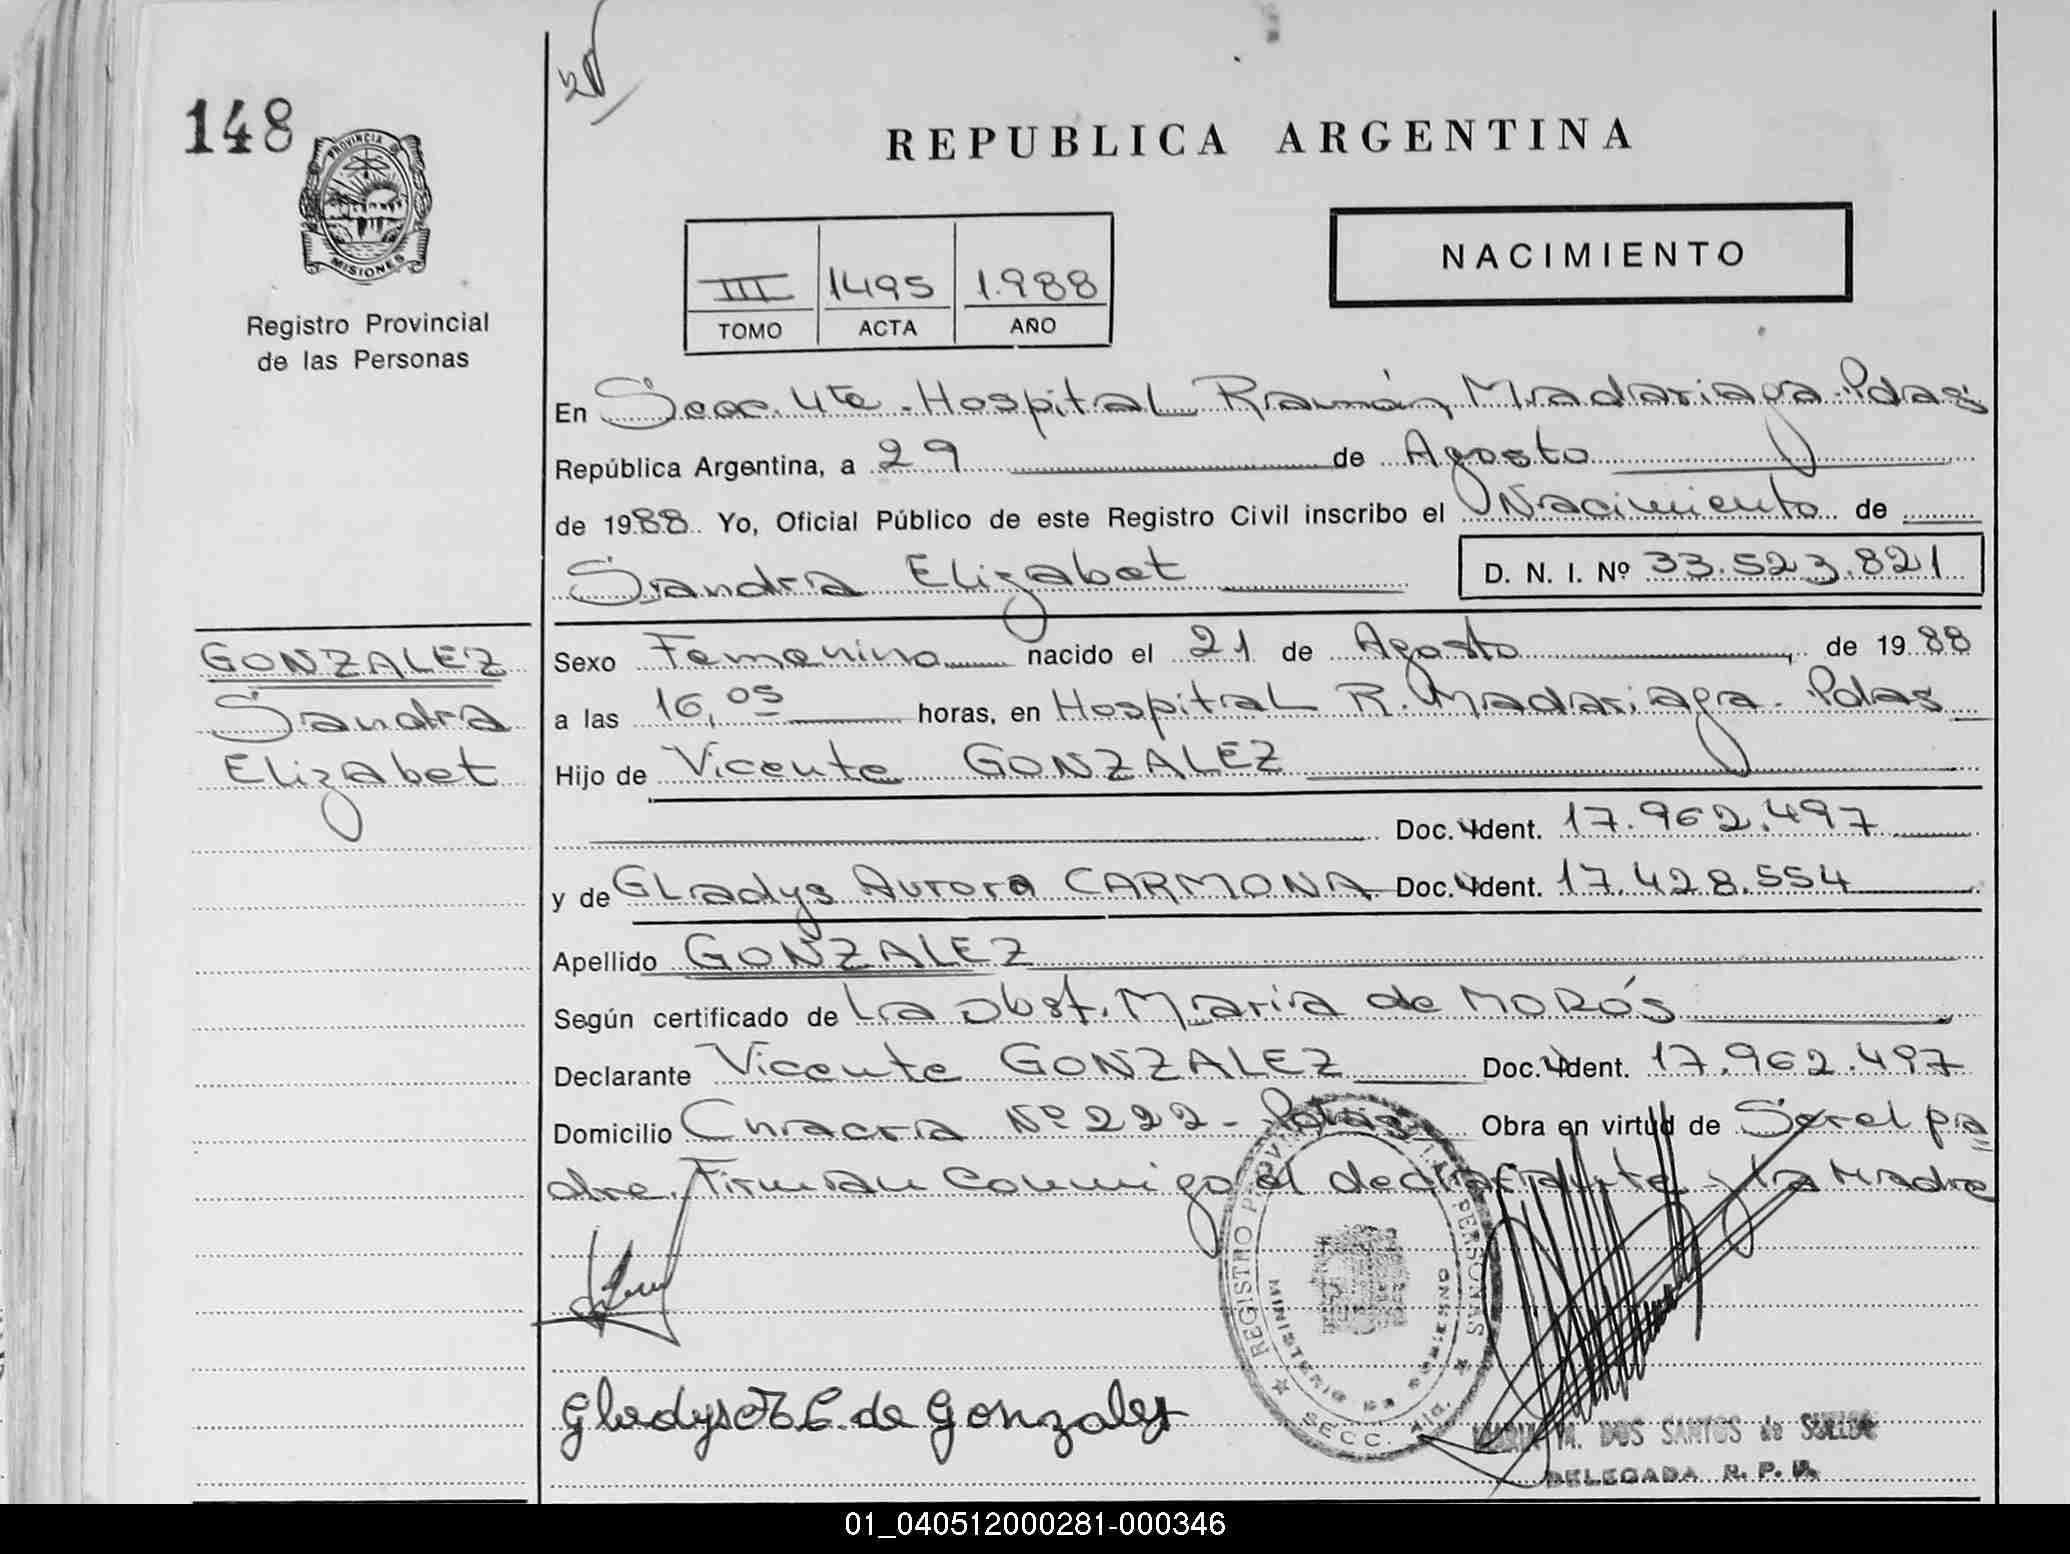 148
PROVINCIA DE
MISIONES
Registro Provincial
de las Personas
REPUBLICA ARGENTINA
NACIMIENTO
III 1495 1.988
TOMO ACTA AÑO
En Secc. 4ta. Hospital Ramón Madariaga. Pdas
República Argentina, a 29 de Agosto
de 1988. Yo, Oficial Público de este Registro Civil inscribo el Nacimiento de
Sandra Elizabet D. N. I. Nº 33.523.821
GONZALEZ
Sandra
Elizabet
Sexo Femenino nacido el 21 de Agosto, de 1988
a las 16,05 horas, en Hospital R. Madariaga. Pdas
Hijo de Vicente GONZALEZ
Doc. Ident. 17.962.497
y de Gladys Aurora CARMONA Doc. Ident. 17.428.554
Apellido GONZALEZ
Según certificado de La Obst. Maria de MOROS
Declarante Vicente GONZALEZ Doc. Ident. 17.962.497
Domicilio Chacra Nº 222 - Pdas Obra en virtud de Ser el pa=
dre. Firman conmigo el declarante y la Madre
REGISTRO PROVINCIAL DE LAS PERSONAS
MINISTERIO DE GOBIERNO
SECC. 4ta.
Gladys A C. de Gonzalez
MARIA M. DOS SANTOS de
DELEGADA R. P. P.
01_040512000281-000346